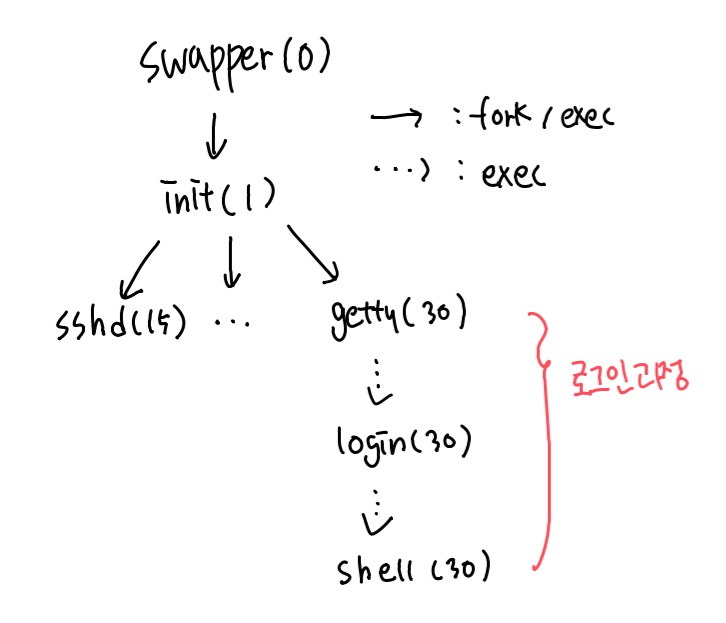 swapper(0)
→ : fork / exec
...> : exec
init(1)
sshd(15) ... getty(30)
로그인과정
login(30)
shell (30)